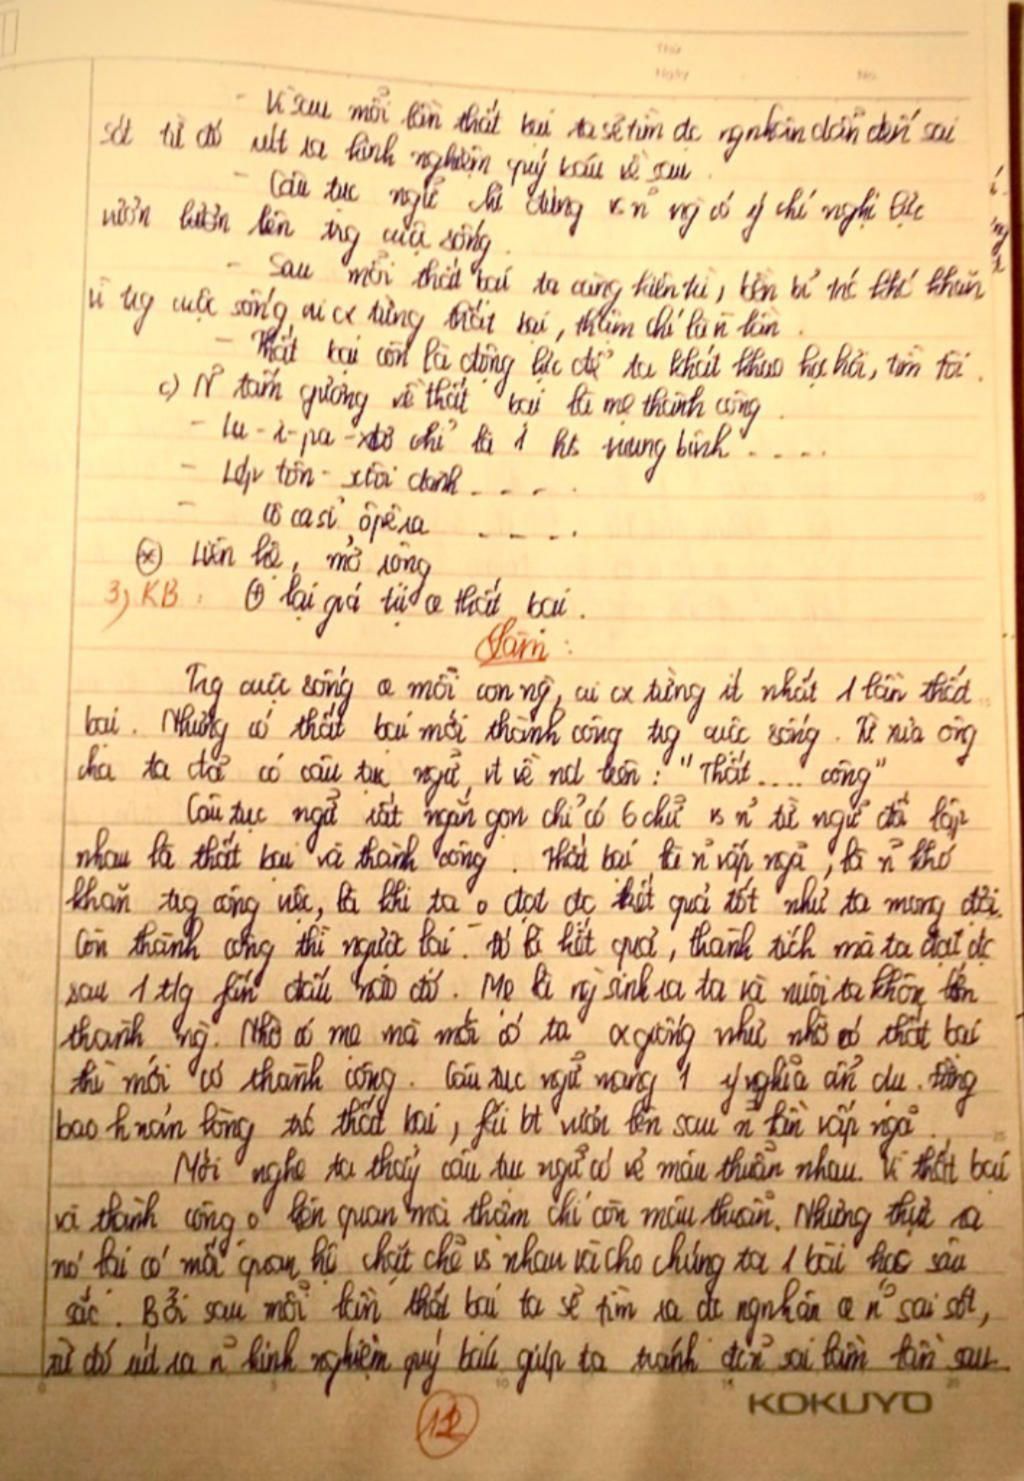 Thứ
Ngày No.
- Vì sau mỗi lần thất bại ta sẽ tìm đc ng nhân dẫn đến sai
sót từ đó rút ra kinh nghiệm quý báu về sau.
- Câu tục ngữ chỉ đúng vs n~ ng` có ý chí nghị lực
vươn lên trg cuộc sống.
- Sau mỗi thất bại ta càng kiên trì, bền bỉ trc khó khăn
vì trg cuộc sống ai cx từng thất bại, thậm chí là n lần.
- Thất bại còn là động lực để ta khát khao học hỏi, tìm tòi.
c) N~ tấm gương về thất bại là mẹ thành công.
- Lu-i-pa-xtơ chỉ là 1 hs trung bình ....
- Lép tôn-xtôi đành ....
- Cô ca sĩ ôpêra ....
(*) Liên hệ, mở rộng
3) KB: (+) lại giá trị @ thất bại.
Làm:
Trg cuộc sống @ mỗi con ng`, ai cx từng ít nhất 1 lần thất
bại. Nhưng có thất bại mới thành công trg cuộc sống. Từ xưa ông
cha ta đã có câu tục ngữ vt về nd trên: "Thất .... công"
Câu tục ngữ rất ngắn gọn chỉ có 6 chữ vs n~ từ ngữ đối lập
nhau là thất bại và thành công. Thất bại là n~ vấp ngã, là n~ khó
khăn trg công việc, là khi ta o đạt đc kết quả tốt như ta mong đợi.
Còn thành công thì ngược lại. Đó là kết quả, thành tích mà ta đạt đc
sau 1 t/g fấn đấu nào đó. Mẹ là ng` sinh ra ta và nuôi ta khôn lớn
thành ng`. Nhờ có mẹ mà mới có ta cx giống như nhờ có thất bại
thì mới có thành công. Câu tục ngữ mang 1 ý nghĩa ẩn dụ. Đừng
bao h nản lòng trc thất bại, fải bt vươn lên sau n~ lần vấp ngã.
Mới nghe ta thấy câu tục ngữ có vẻ mâu thuẫn nhau. Vì thất bại
và thành công o liên quan mà thậm chí còn mâu thuẫn. Nhưng thực ra
nó lại có mối quan hệ chặt chẽ vs nhau và cho chúng ta 1 bài học sâu
sắc. Bởi sau mỗi lần thất bại ta sẽ tìm ra đc ng nhân @ n~ sai sót,
từ đó rút ra n~ kinh nghiệm quý báu giúp ta tránh đc n~ sai lầm lần sau.
12
KOKUYO